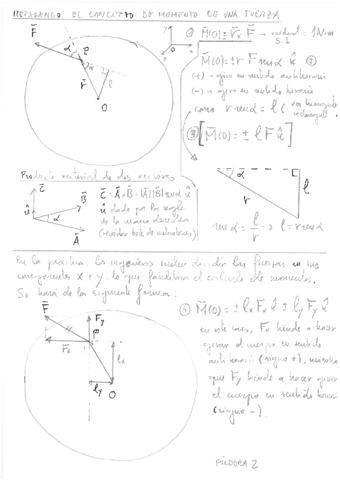 REPASANDO EL CONCEPTO DE MOMENTO DE UNA FUERZA
F
P
α
r
l
O
① M(O) = r x F → unidad: 1 N·m
S.I.
M(O) = ± r F senα û ②
(+) → giro en sentido antihorario
(-) → giro en sentido horario
como r senα = l (ver triángulo rectángulo)
③ [M(O) = ± l F û]
Producto vectorial de dos vectores
C
B
û
α
A
C = A x B = |A||B| senα û
û dado por la regla
de la mano derecha
α
l
r
senα = l/r → l = r senα
En la práctica, los ingenieros suelen dividir las fuerzas en sus
componentes X e Y, lo que facilita el cálculo de momentos.
Se hará de la siguiente forma:
F
Fy
Fx
P
lx
ly
O
④ M(O) = ± lx Fx û ± ly Fy û
en este caso, Fx tiende a hacer
girar el cuerpo en sentido
antihorario (signo +), mientras
que Fy tiende a hacer girar
el cuerpo en sentido horario
(signo -).
PÍLDORA 2